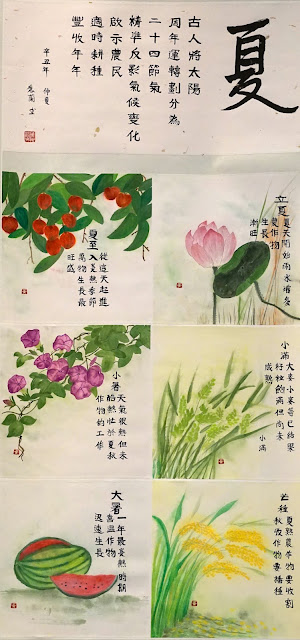 夏
古人將太陽
周年運轉劃分為
二十四節氣
精準反影氣候變化
啟示農民
適時耕種
豐收年年
辛丑年 仲夏
立夏
夏天開始雨水增多
農作物
生長
漸旺
小滿
大麥小麥等已結果
籽粒飽滿但尚未
成熟
小滿
芒種
夏熟農作物要收割
秋收作物要播種
夏至
從這天起進
入炎熱季節
萬物生長最
旺盛
小暑
天氣很熱但未
酷熱忙於夏秋
作物的工作
大暑
一年最炎熱時期
喜溫作物
迅速生長